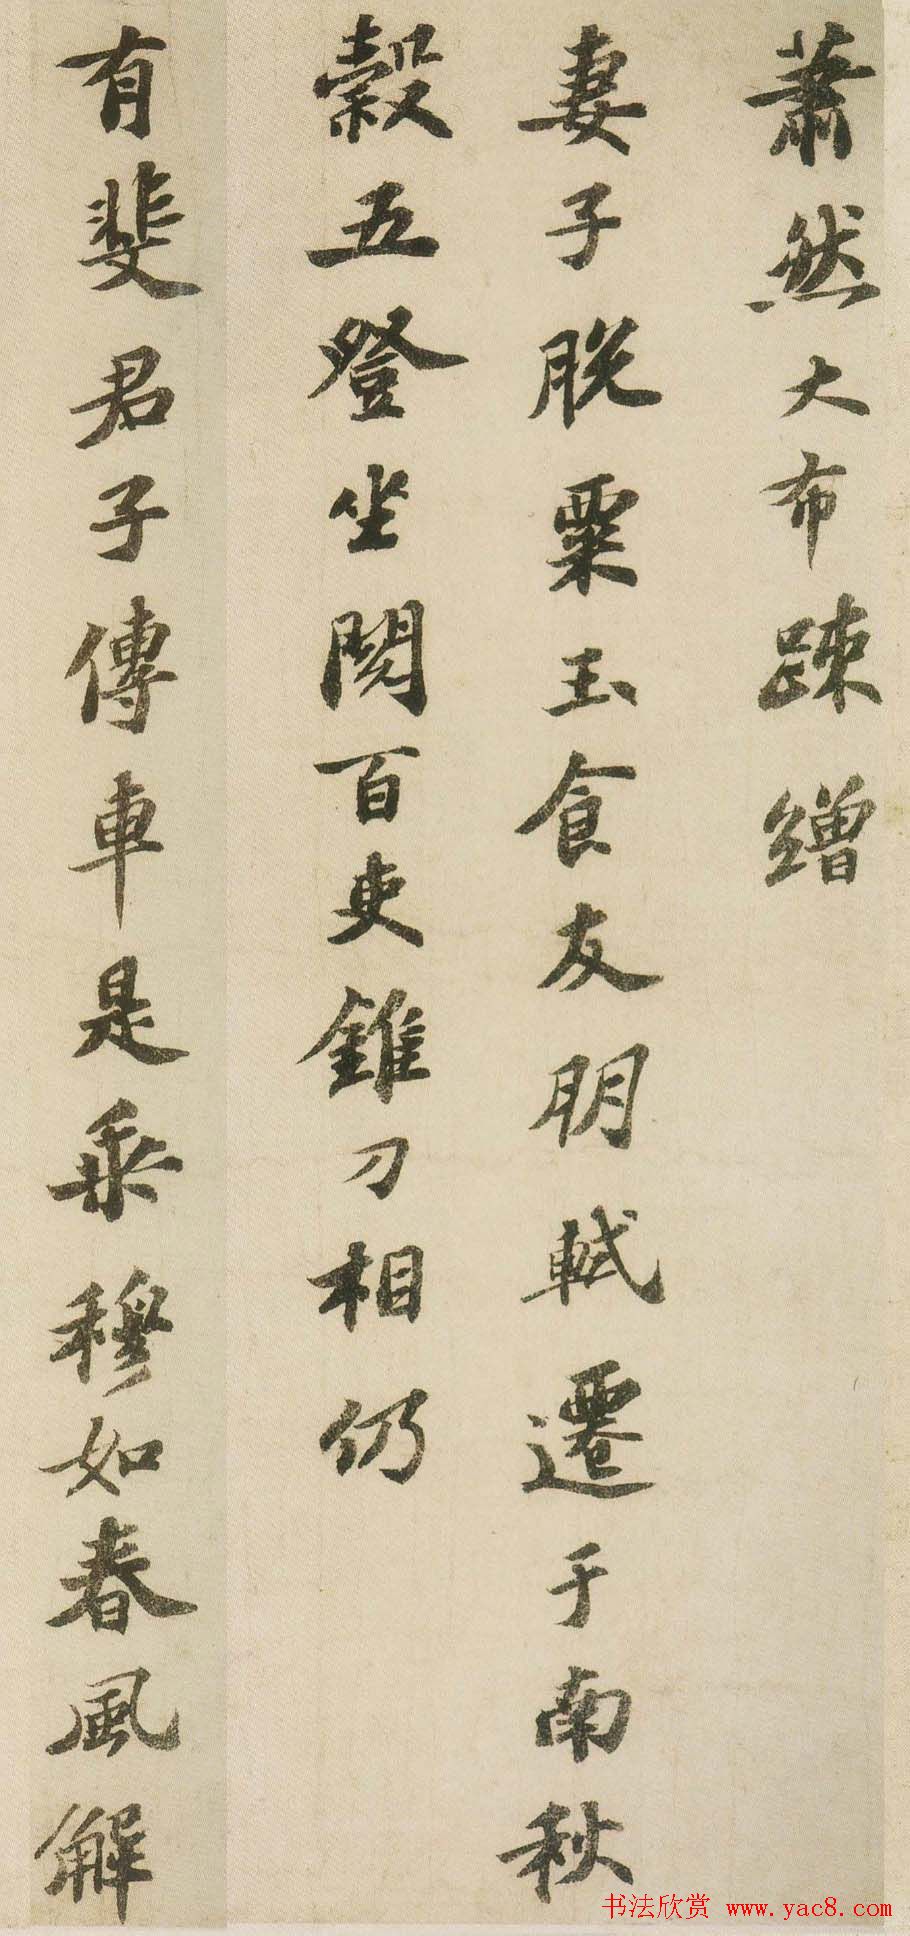 蕭然大布疎繒
妻子脫粟玉食友朋軾遷于南秋
穀五登坐閱百吏錐刀相仍
有斐君子傳車是乘穆如春風解
书法欣赏 www.yac8.com